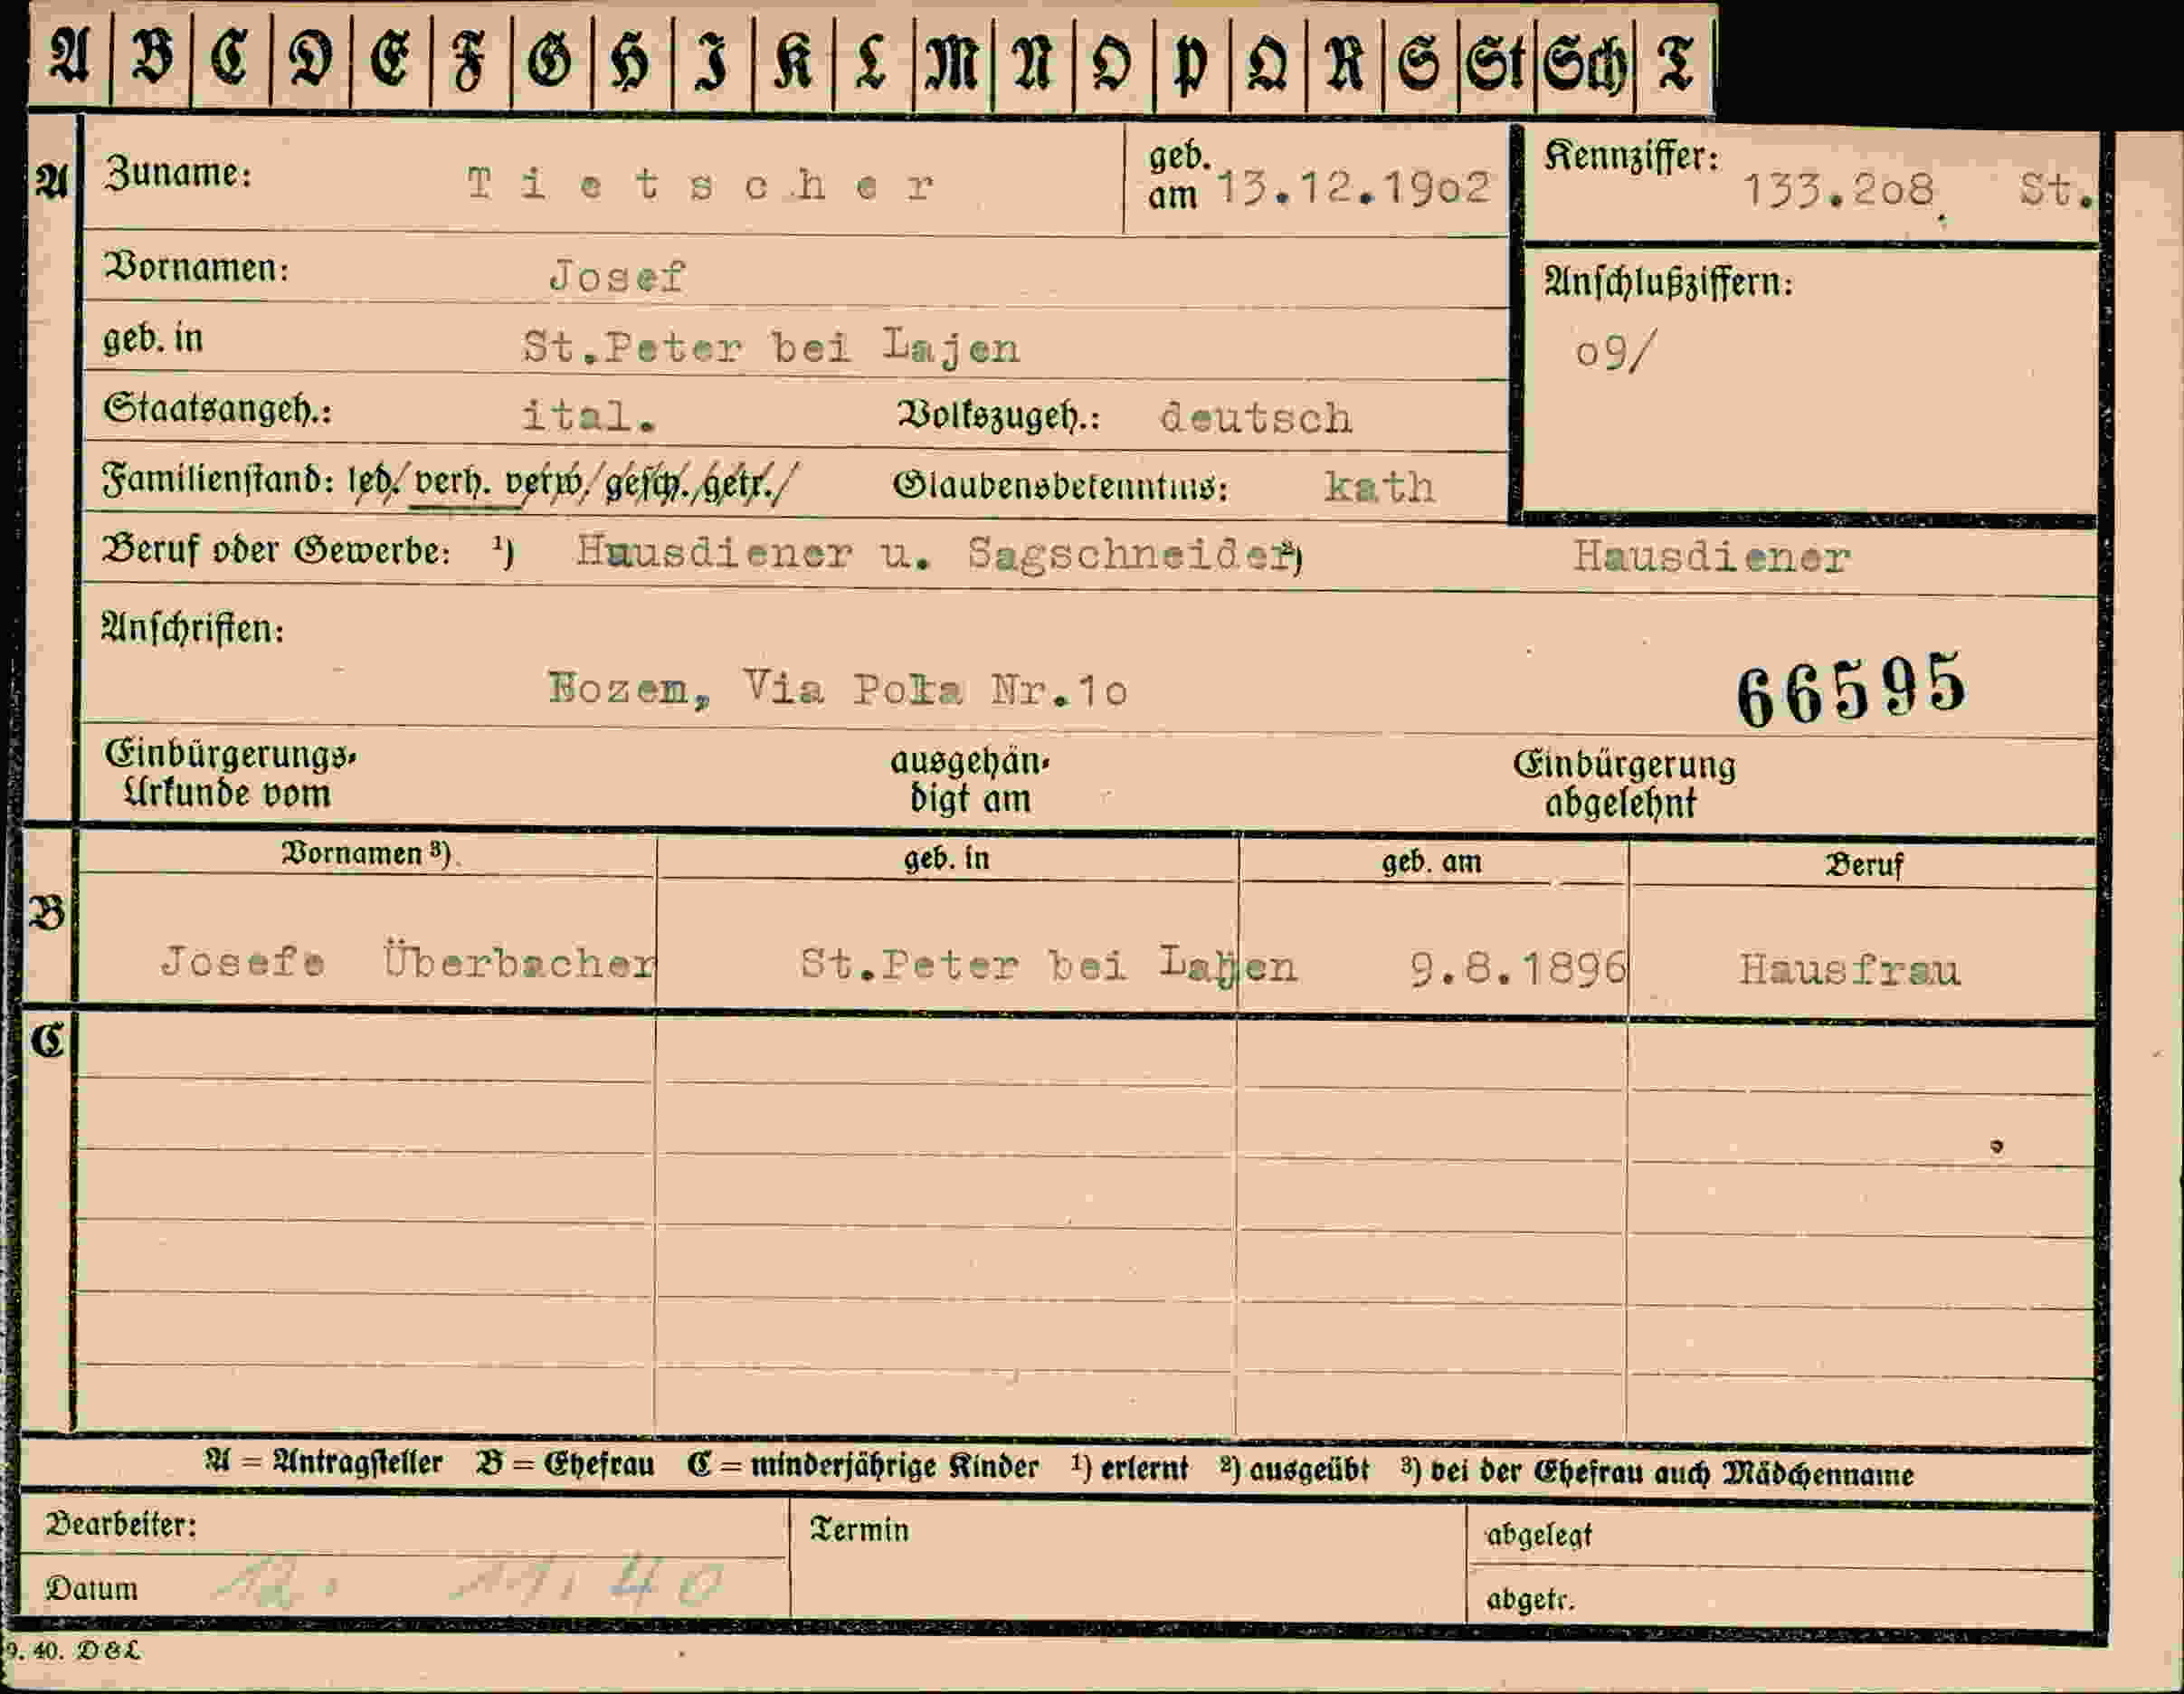 A B C D E F G H I K L M N O P Q R S St Sch T
A Zuname: Tietscher geb. am 13.12.19o2 Kennziffer: 133.2o8. St.
Vornamen: Josef
Anschlußziffern:
geb. in St.Peter bei Lajen
o9/
Staatsangeh.: ital. Volkszugeh.: deutsch
Familienstand: led./ verh. verw./ gesch./ getr./ Glaubensbekenntnis: kath
Beruf oder Gewerbe: ¹) Hausdiener u. Sagschneider ²) Hausdiener
Anschriften:
Bozen, Via Pola Nr.1o 66595
Einbürgerungs-
Urkunde vom
ausgehän-
digt am
Einbürgerung
abgelehnt
Vornamen ³) geb. in geb. am Beruf
B
Josefe Überbacher St.Peter bei Lajen 9.8.1896 Hausfrau
C
A = Antragsteller B = Ehefrau C = minderjährige Kinder ¹) erlernt ²) ausgeübt ³) bei der Ehefrau auch Mädchenname
Bearbeiter: Termin abgelegt
Datum 11. 40 abgetr.
9. 40. D&L